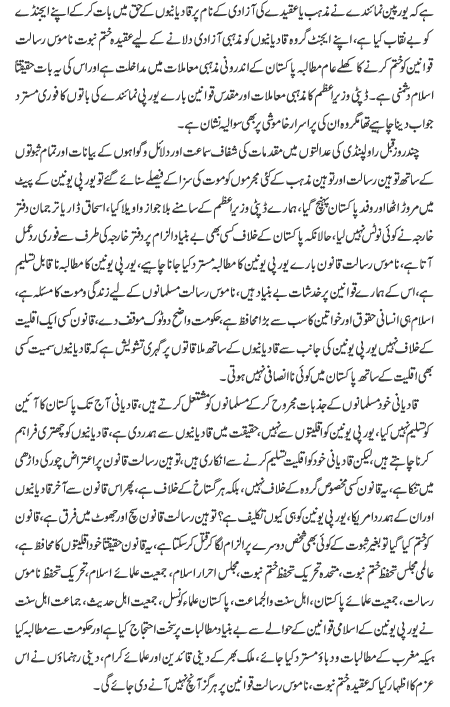 ہے کہ یورپین نمائندے نے مذہب یا عقیدے کی آزادی کے نام پر قادیانیوں کے حق میں بات کر کے اپنے ایجنڈے
کو بے نقاب کیا ہے، اپنے ایجنٹ گروہ قادیانیوں کو مذہبی آزادی دلانے کے لیے عقیدہ ختم نبوت ناموس رسالت
قوانین کو ختم کرنے کا کھلے عام مطالبہ پاکستان کے اندرونی مذہبی معاملات میں مداخلت ہے اور اس کی یہ بات حقیقتاً
اسلام دشمنی ہے۔ ڈپٹی وزیر اعظم کا مذہبی معاملات اور مقدس قوانین بارے یورپی نمائندے کی باتوں کا فوری مسترد
جواب دینا چاہیے تھا مگر وہ ان کی پراسرار خاموشی پر بھی سوالیہ نشان ہے۔
چند روز قبل راولپنڈی کی عدالتوں میں مقدمات کی شفاف سماعت اور دلائل و گواہوں کے بیانات اور تمام ثبوتوں
کے ساتھ توہین رسالت اور توہین مذہب کے کئی مجرموں کو موت کی سزا کے فیصلے سنائے گئے تو یورپی یونین کے پیٹ
میں مروڑ اٹھا اور وفد پاکستان پہنچ گیا، ہمارے ڈپٹی وزیر اعظم کے سامنے بلاجواز واویلا کیا، اسحاق ڈار یا ترجمان دفتر
خارجہ نے کوئی نوٹس نہیں لیا، حالانکہ پاکستان کے خلاف کسی بھی بے بنیاد الزام پر دفتر خارجہ کی طرف سے فوری ردعمل
آتا ہے، ناموس رسالت قانون بارے یورپی یونین کا مطالبہ مسترد کیا جانا چاہیے، یورپی یونین کا مطالبہ ناقابل تسلیم
ہے، اس کے ہمارے قوانین پر خدشات بے بنیاد ہیں، ناموس رسالت مسلمانوں کے لیے زندگی و موت کا مسئلہ ہے،
اسلام ہی انسانی حقوق اور خواتین کا سب سے بڑا محافظ ہے، حکومت واضح دوٹوک موقف دے، قانون کسی ایک اقلیت
کے خلاف نہیں یورپی یونین کی جانب سے قادیانیوں کے ساتھ ملاقاتوں پر گہری تشویش ہے کہ قادیانیوں سمیت کسی
بھی اقلیت کے ساتھ پاکستان میں کوئی ناانصافی نہیں ہوتی۔
قادیانی خود مسلمانوں کے جذبات مجروح کر کے مسلمانوں کو مشتعل کرتے ہیں، قادیانی آج تک پاکستان کا آئین
کو تسلیم نہیں کیا، یورپی یونین کو اقلیتوں سے نہیں، حقیقت میں قادیانیوں سے ہمدردی ہے، قادیانیوں کو چھتری فراہم
کرنا چاہتے ہیں، لیکن قادیانی خود کو اقلیت تسلیم کرنے سے انکاری ہیں، توہین رسالت قانون پر اعتراض چور کی داڑھی
میں تنکا ہے، یہ قانون کسی مخصوص گروہ کے خلاف نہیں، بلکہ ہر گستاخ کے خلاف ہے، پھر اس قانون سے آخر قادیانیوں
اور ان کے ہمدرد امریکا، یورپی یونین کو ہی کیوں تکلیف ہے؟ توہین رسالت قانون سچ اور جھوٹ میں فرق ہے، قانون
کو ختم کیا گیا تو بغیر ثبوت کے کوئی بھی شخص دوسرے پر الزام لگا کر قتل کر سکتا ہے، یہ قانون حقیقتاً خود اقلیتوں کا محافظ ہے،
عالمی مجلس تحفظ ختم نبوت، متحدہ تحریک تحفظ ختم نبوت، مجلس احرار اسلام، جمعیت علمائے اسلام، تحریک تحفظ ناموس
رسالت، جمعیت علمائے پاکستان، اہل سنت والجماعت، پاکستان علماء کونسل، جمعیت اہل حدیث، جماعت اہل سنت
نے یورپی یونین کے اسلامی قوانین کے حوالے سے بے بنیاد مطالبات پر سخت احتجاج کیا ہے اور حکومت سے مطالبہ کیا
ہیکہ مغرب کے مطالبات و دباؤ مسترد کیا جائے، ملک بھر کے دینی قائدین اور علمائے کرام، دینی رہنماؤں نے اس
عزم کا اظہار کیا کہ عقیدہ ختم نبوت، ناموس رسالت قوانین پر ہرگز آنچ نہیں آنے دی جائے گی۔